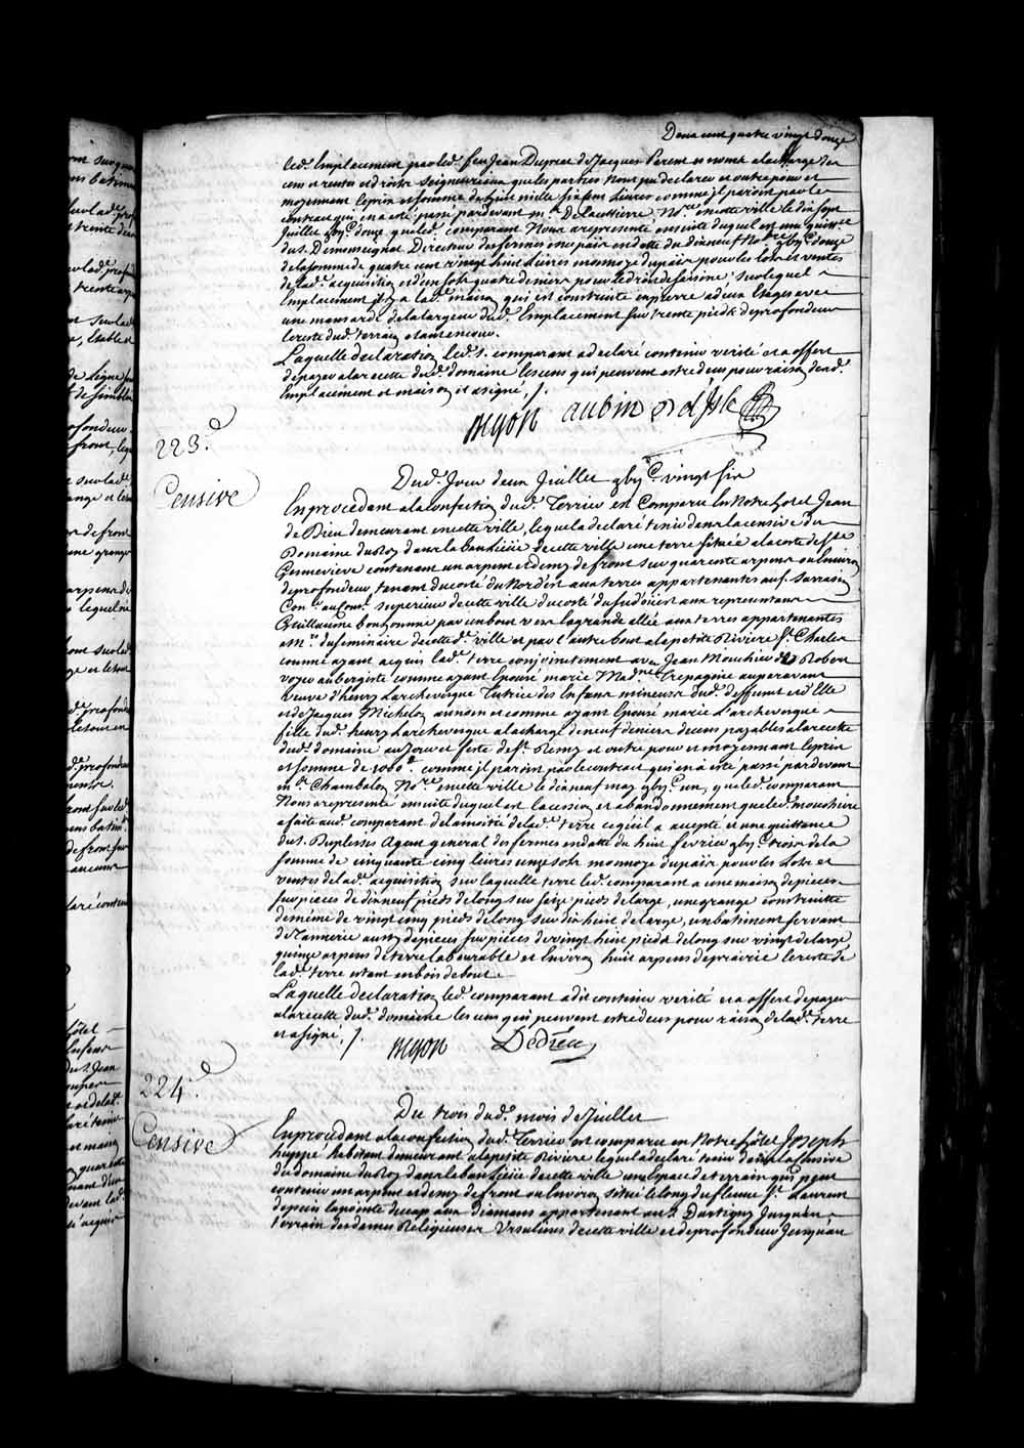 Deux cent quatre vingt douze
led. Emplacement pao led. feu Jean Duprat de Jacques Parent es noms a la charge des
cens et rentes et droits Seigneuriaux que les parties n'ont pu declarer et outre pour et
moyennant le prix et somme de huit mille six livres comme jl paroist par le
contrat qui en a esté passé pardevant m.re Delacettiere No.re en cette ville le dix sept
Juillet gbij.C douze que led. comparant Nous a representé ensuite duquel est une quitt.ce
du s. Demonseignat Directeur des fermes en ce païs en datte du dix neuf No.bre gbij.C douze
de la somme de quatre cent vingt huit livres monnoye du païs pour les lots et ventes
de lad. acquisition et d'un sols quatre deniers pour le droit de saisine, sur lequel
Emplacement il y a lad. maison qui est construite en pierre a deux Etages avec
une mansarde de la largeur dud. Emplacement sur trente pieds de profondeur
le reste dud. terrain estant en cour.
Laquelle declaration led. s. comparant a declaré contenir verité et a offert
de payer a la recette dud. domaine les cens qui peuvent estre deus pour raison dud.
Emplacement et maison et a signé, /.
Begon aubin Delisle
223.e
Censive
Dud. Jour deux Juillet gbij.C vingt six
En procedant a la confection dud. Terrier est Comparu En Notre hotel Jean
de Dieu demeurant en cette ville, lequel a declaré tenir dans la censive du
Domaine du Roy dans la banlieüe de cette ville une terre située a la coste de S.te
Genevieve contenant un arpent et demy de front sur quarente arpens ou Environ
de profondeur, tenant du costé du Nord'est aux terres appartenantes au s. Sarrazin
Con.er au Con.el superieur de cette ville du costé du sud'oüest aux representans
Guillaume bonhomme par un bout vers la grande allée aux terres appartenantes
a M.rs du seminaire de cette d. ville et par l'autre bout a la petite Riviere S.t Charles
comme ayant acquis lad. terre conjointement avec Jean Mouchiere de Robert
voyer aubergiste comme ayant Epousé marie Mad.ne Trepagnie auparavant
veuve d'henry Larchevesque Tutrice des Enfans mineurs dud. deffunt et d'Elle
et de Jacques Michelon au nom et comme ayant Epousé marie Larchevesque
fille dud. henry Larchevesque a la charge de neuf deniers de cens payables a la recette
dud. domaine au jour et feste de S.t Remy et outre pour et moyennant le prix
et somme de 1060.lt comme jl paroist par le contrat qui en a esté passé pardevant
m.re Chambalon No.re en cette ville le dix neuf may gbij.C un, que led. comparant
Nous a representé ensuite duquel est la cession et abandonnement que led. mouchiere
a faite aud. comparant de la moitié de lad. terre ce qu'il a accepté et une quittance
du s. Duplessis Agent general des fermes en datte du huit fevrier gbij.C trois de la
somme de cinquante cinq livres onze sols monnoye du païs pour les Lots et
ventes de lad. acquisition, sur laquelle terre led. comparant a une maison de pieces
sur pieces de dix neuf pieds de long sur seize pieds de large, une grange construitte
de meme de vingt cinq pieds de long sur dix huit de large, un batiment servant
de Tannerie aussy de pieces sur pieces de vingt huit pieds de long sur vingt de large
quinze arpens de terre labourable et Environ huit arpens de prairie le reste de
lad. terre estant en bois debout.
Laquelle declaration led. comparant a dit contenir verité et a offert de payer
a la recette dud. domaine les cens qui peuvent estre deus pour raison de lad. terre
et a signé, /. Begon Dedieu
224.e
Censive
Du trois dud. mois de Juillet
En procedant a la confection dud. Terrier est comparu en Notre hôtel Joseph
huppé habitant demeurant a la petite Riviere lequel a declaré tenir dans la Censive
du domaine du Roy dans la banlieüe de cette ville un Espace de terrain qui peut
contenir un arpent et demy de front ou Environ situé le long du fleuve S.t Laurent
depuis la pointe du cap aux Diamans appartenant au s. Dartigny Jusqu'au
terrain des dames Religieuses Ursulines de cette ville et de profondeur Jusqu'au